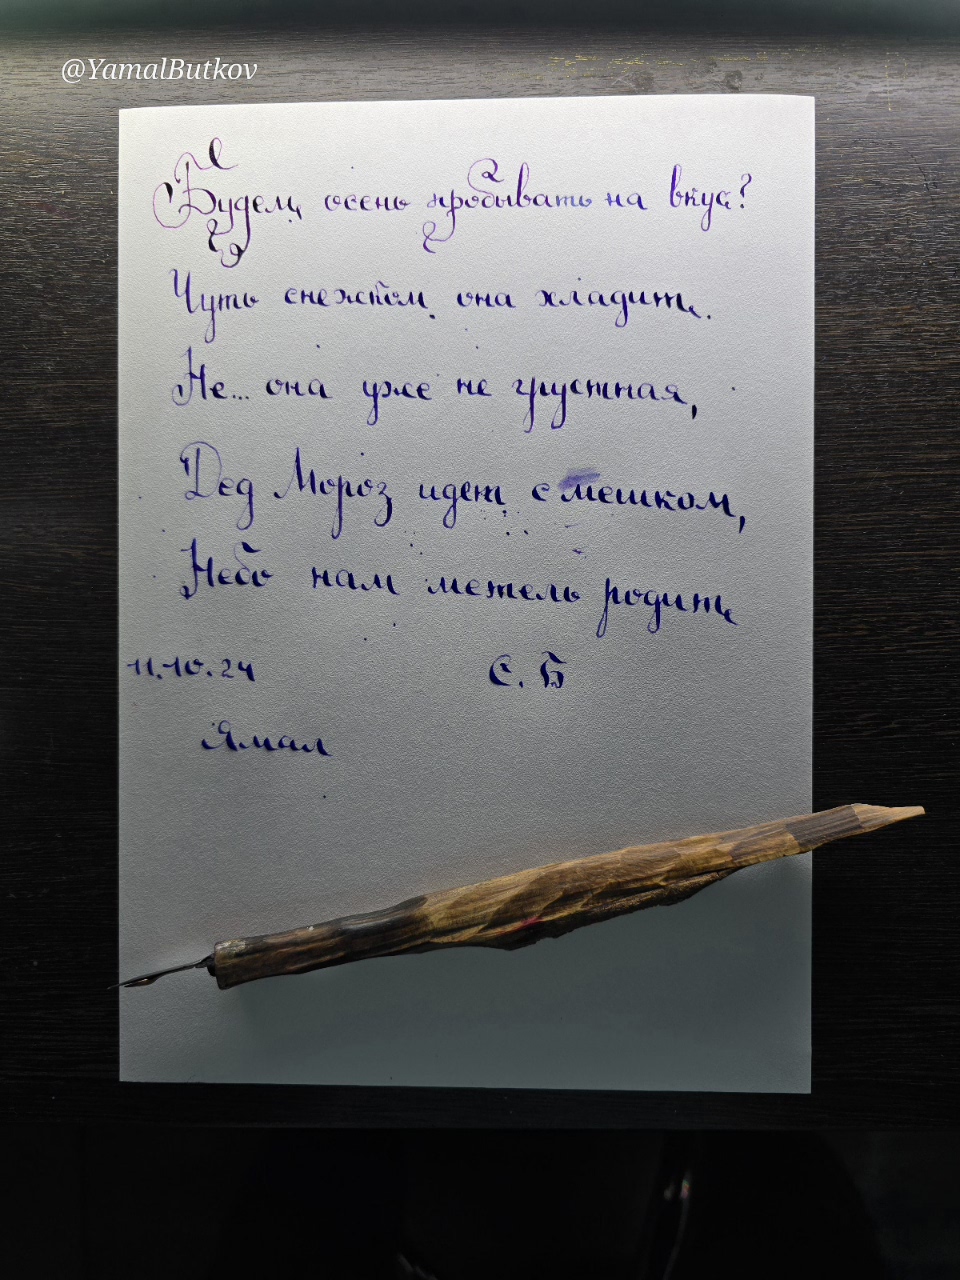 @YamalButkov
Будем осень пробывать на вкус?
Чуть снежком она хладит.
Не... она уже не грустная,
Дед Мороз идет с мешком,
Небо нам метель родит
11.10.24 С. Б
Ямал